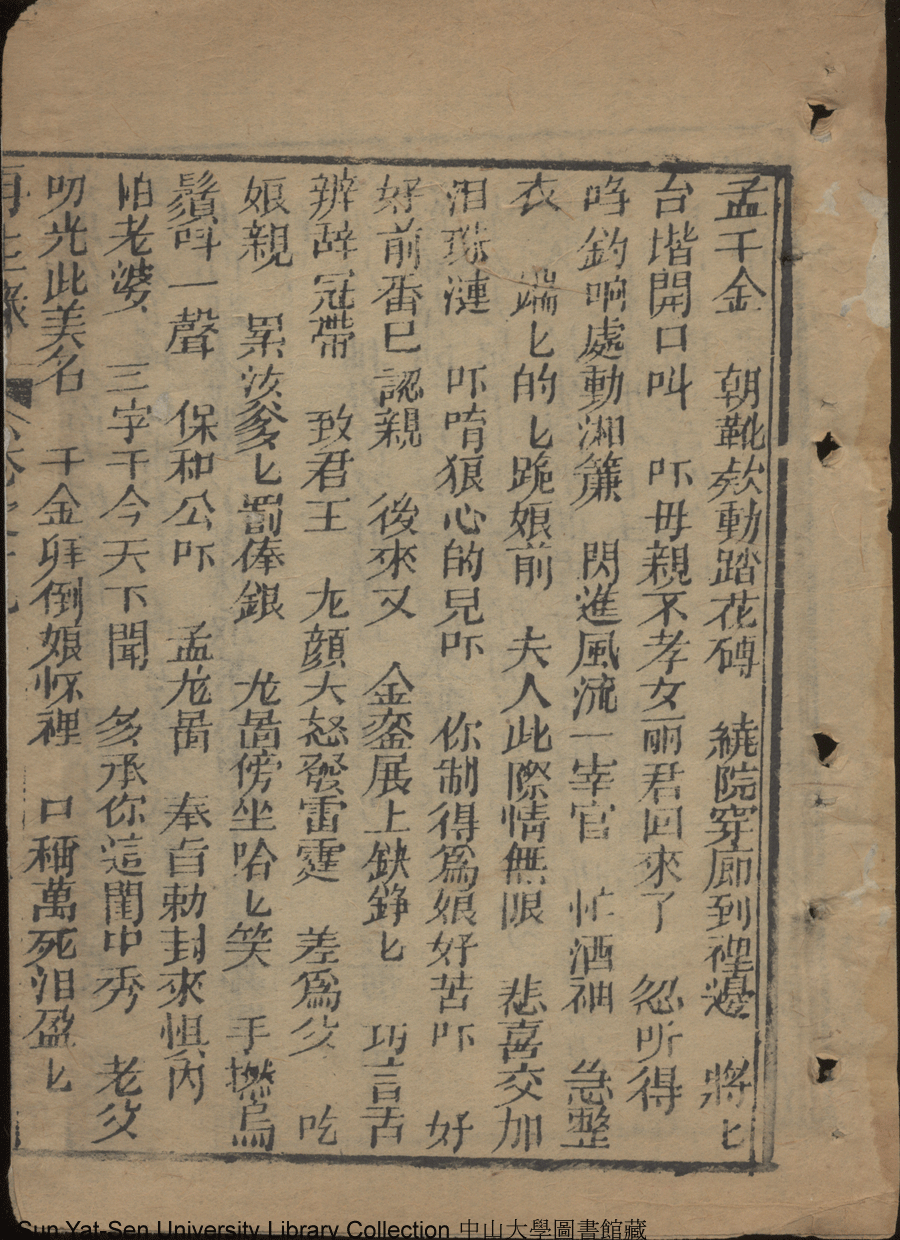 孟千金 朝靴欸動踏花磚 繞院穿廊到裡邊 將匕
台堦開口叫 吓母親不孝女丽君回來了 忽听得
㕷鈎响處動湘簾 閃進風流一宰官 忙洒袖 急整
衣 端匕的匕跪娘前 夫人此際情無限 悲喜交加
泪珠漣 吓唷狠心的兒吓 你制得爲娘好苦吓 好
好前番已認親 後來又 金銮展上缺錚匕 巧言舌
辨辞冠帶 致君王 龙顔大怒發雷霆 差爲父 吃
娘親 累汝爹匕罰俸銀 龙啚傍坐哈匕笑 手撚烏
鬚呌一聲 保和公吓 孟龙啚 奉旨勅封來惧内
怕老婆 三字于今天下聞 多承你這閨中秀 老父
叨光此美名 千金拜倒娘怀裡 口稱萬死泪盈匕
再生緣 卷之十九
Sun Yat-Sen University Library Collection 中山大學圖書館藏